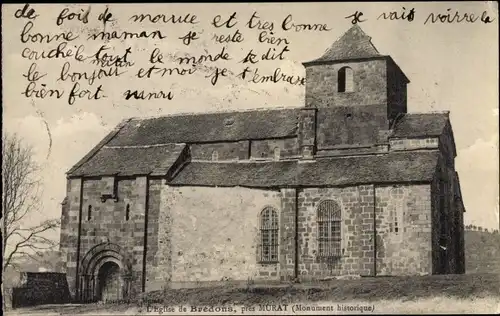 de fois de morrue et tres bonne je vais voirre le
bonne maman je reste bien
couchée tout le monde te dit
le bonjour et moi je t'embrasse
bien fort. nanri
L'Eglise de Bredons, près MURAT (Monument historique)